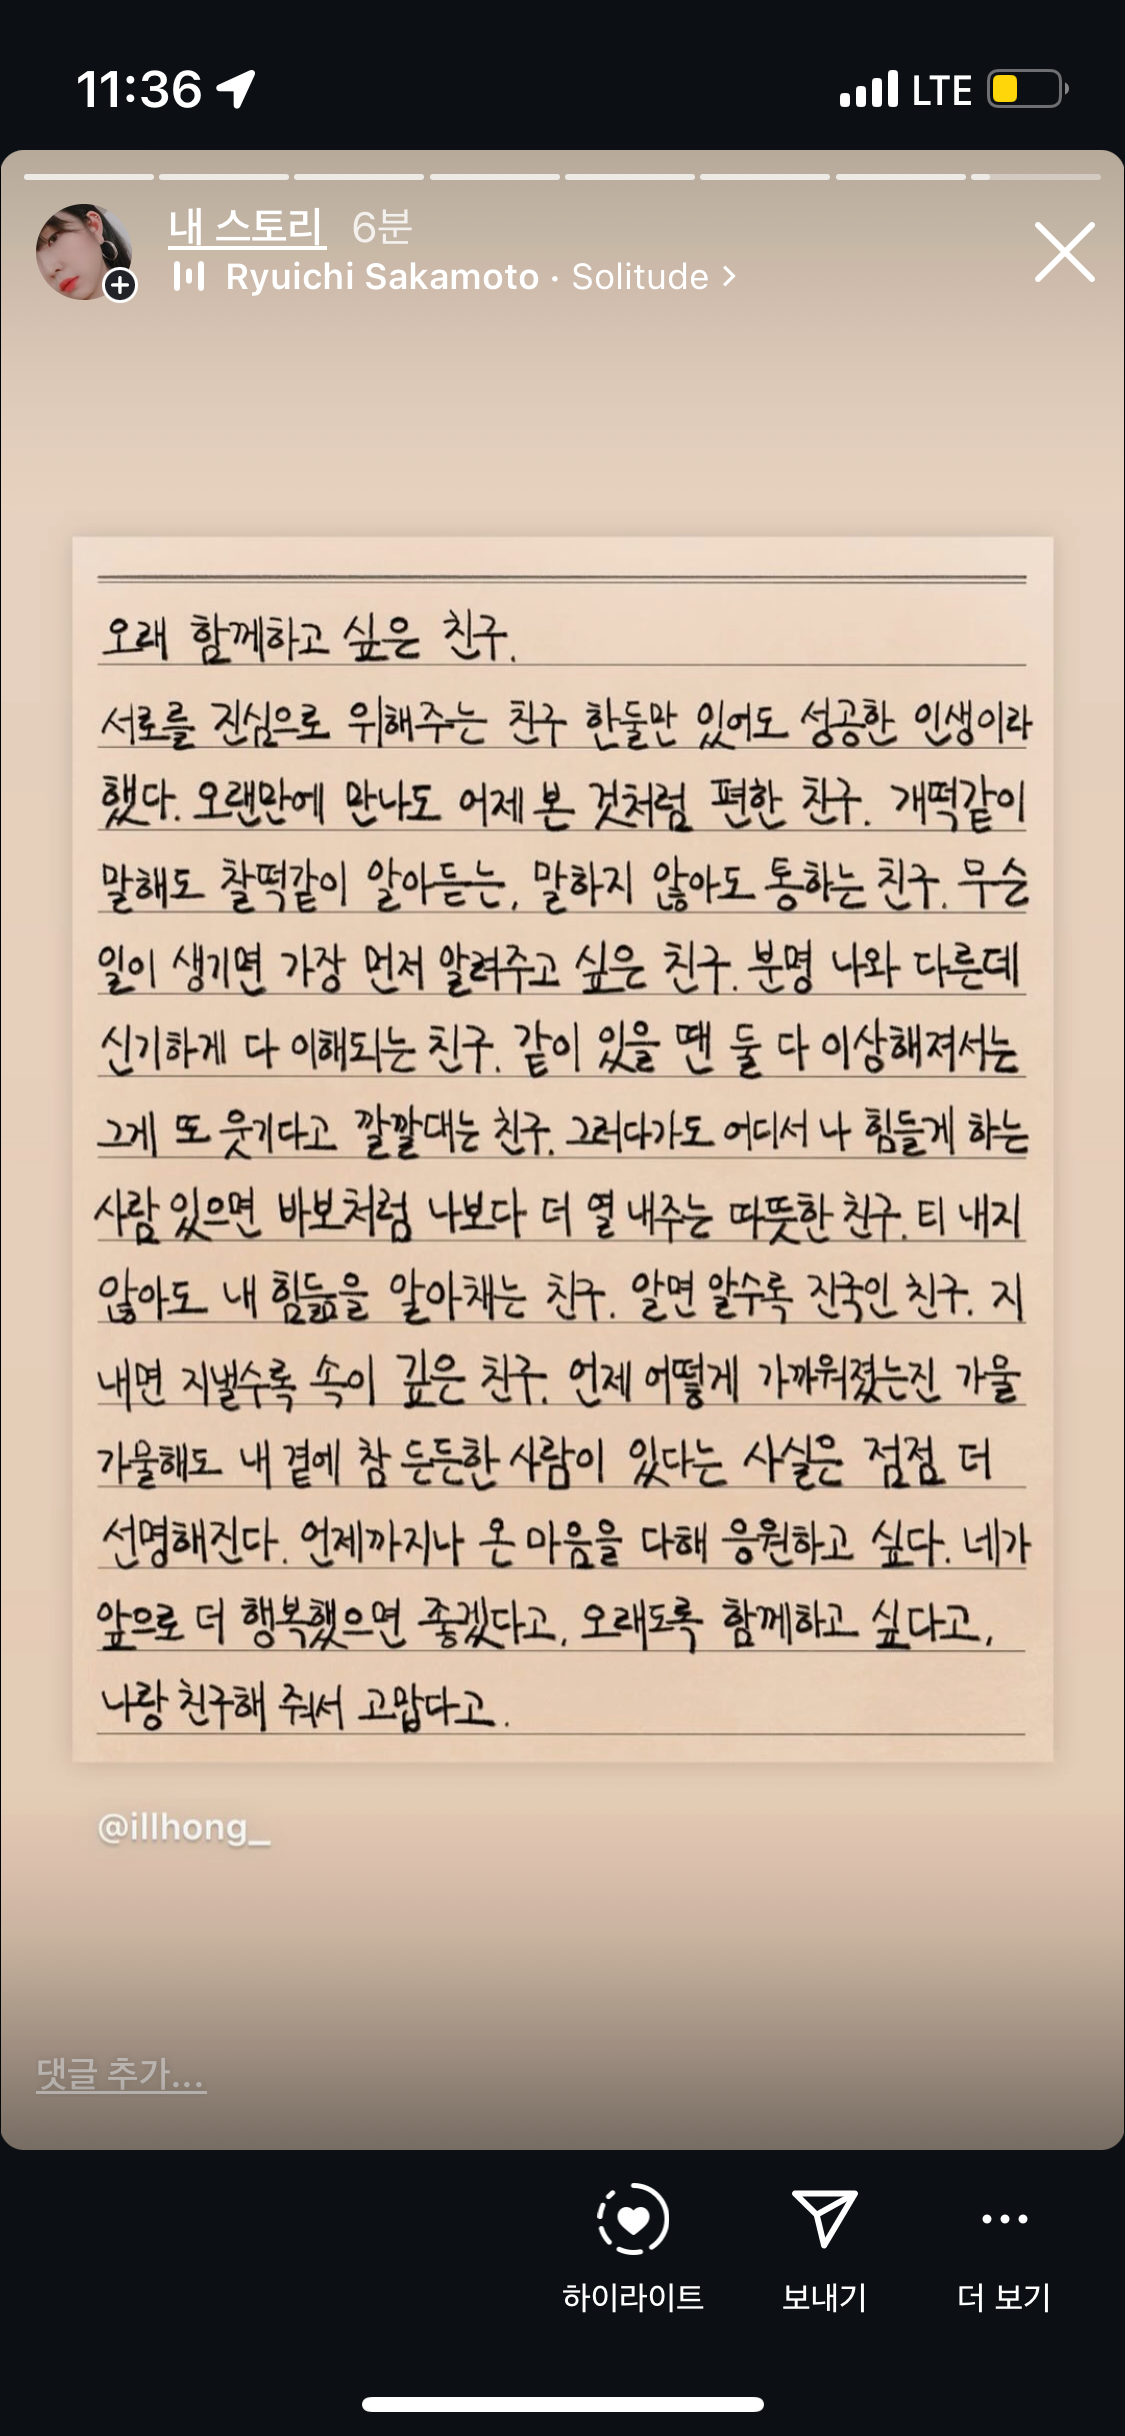 11:36
LTE
내 스토리 6분
Ryuichi Sakamoto · Solitude
오래 함께하고 싶은 친구.
서로를 진심으로 위해주는 친구 한둘만 있어도 성공한 인생이라
했다. 오랜만에 만나도 어제 본 것처럼 편한 친구. 개떡같이
말해도 찰떡같이 알아듣는, 말하지 않아도 통하는 친구. 무슨
일이 생기면 가장 먼저 알려주고 싶은 친구. 분명 나와 다른데
신기하게 다 이해되는 친구. 같이 있을 땐 둘 다 이상해져서는
그게 또 웃기다고 깔깔대는 친구. 그러다가도 어디서 나 힘들게 하는
사람 있으면 바보처럼 나보다 더 열 내주는 따뜻한 친구. 티 내지
않아도 내 힘듦을 알아채는 친구. 알면 알수록 진국인 친구. 지
내면 지낼수록 속이 깊은 친구. 언제 어떻게 가까워졌는진 가물
가물해도 내 곁에 참 든든한 사람이 있다는 사실은 점점 더
선명해진다. 언제까지나 온 마음을 다해 응원하고 싶다. 네가
앞으로 더 행복했으면 좋겠다고, 오래도록 함께하고 싶다고,
나랑 친구해 줘서 고맙다고.
@illhong_
댓글 추가...
하이라이트 보내기 더 보기